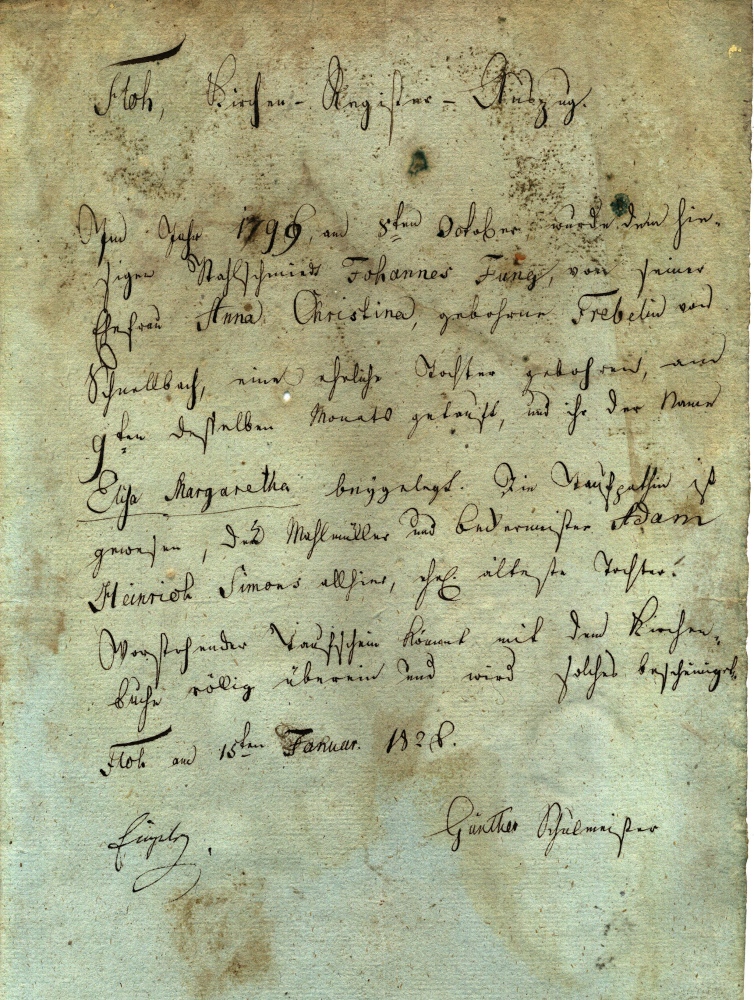 Floh, Kirchen-Register-Auszug.
Im Jahr 1796, am 8ten October, wurde dem hie-
sigen Stahlschmidt Johannes Jung, von seiner
Ehefrau Anna Christina, gebohrne Frebelin von
Schnellbach, eine eheliche Tochter gebohren, am
9ten desselben Monats getauft, und ihr der Name
Elisa Margaretha beygelegt. Die Taufpathin ist
gewesen, des Mahlmüller und Beckermeister Adam
Heinrich Simons allhier, ehel. älteste Tochter.
Vorstehender Taufschein kömmt mit dem Kirchen-
buche völlig überein und wird solches bescheinigt.
Floh am 15ten Januar. 1828.
Günther Schulmeister